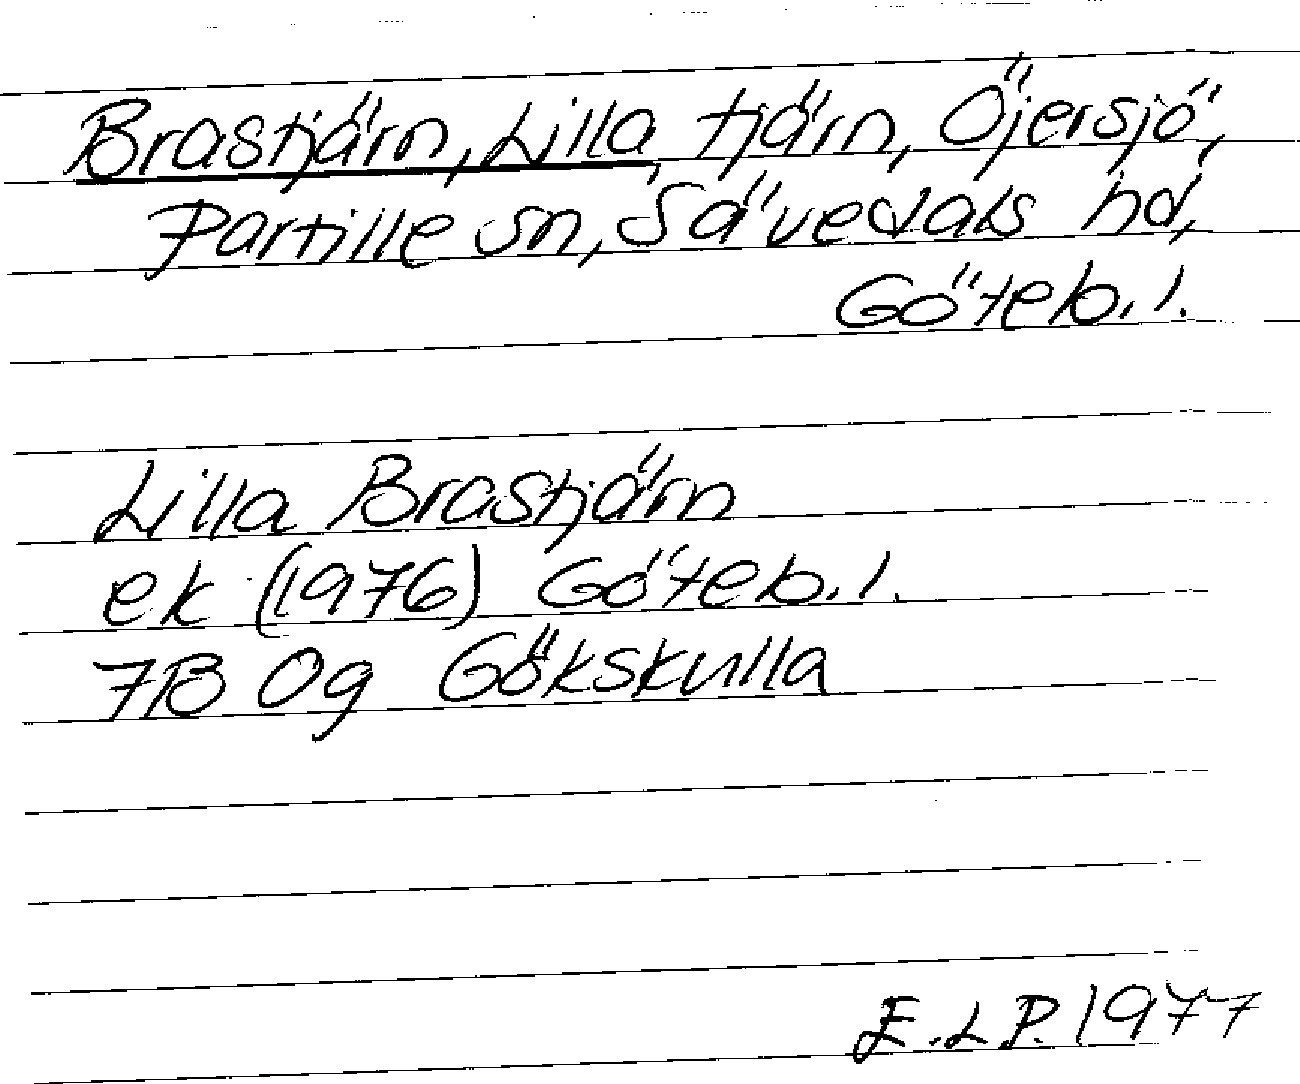 Brastjärn, Lilla, tjärn, Öjersjö,
Partille sn, Sävedals hd,
Göteb. l.
Lilla Brastjärn
ek (1976) Göteb. l.
7B 0g Gökskulla
E.L.P. 1977